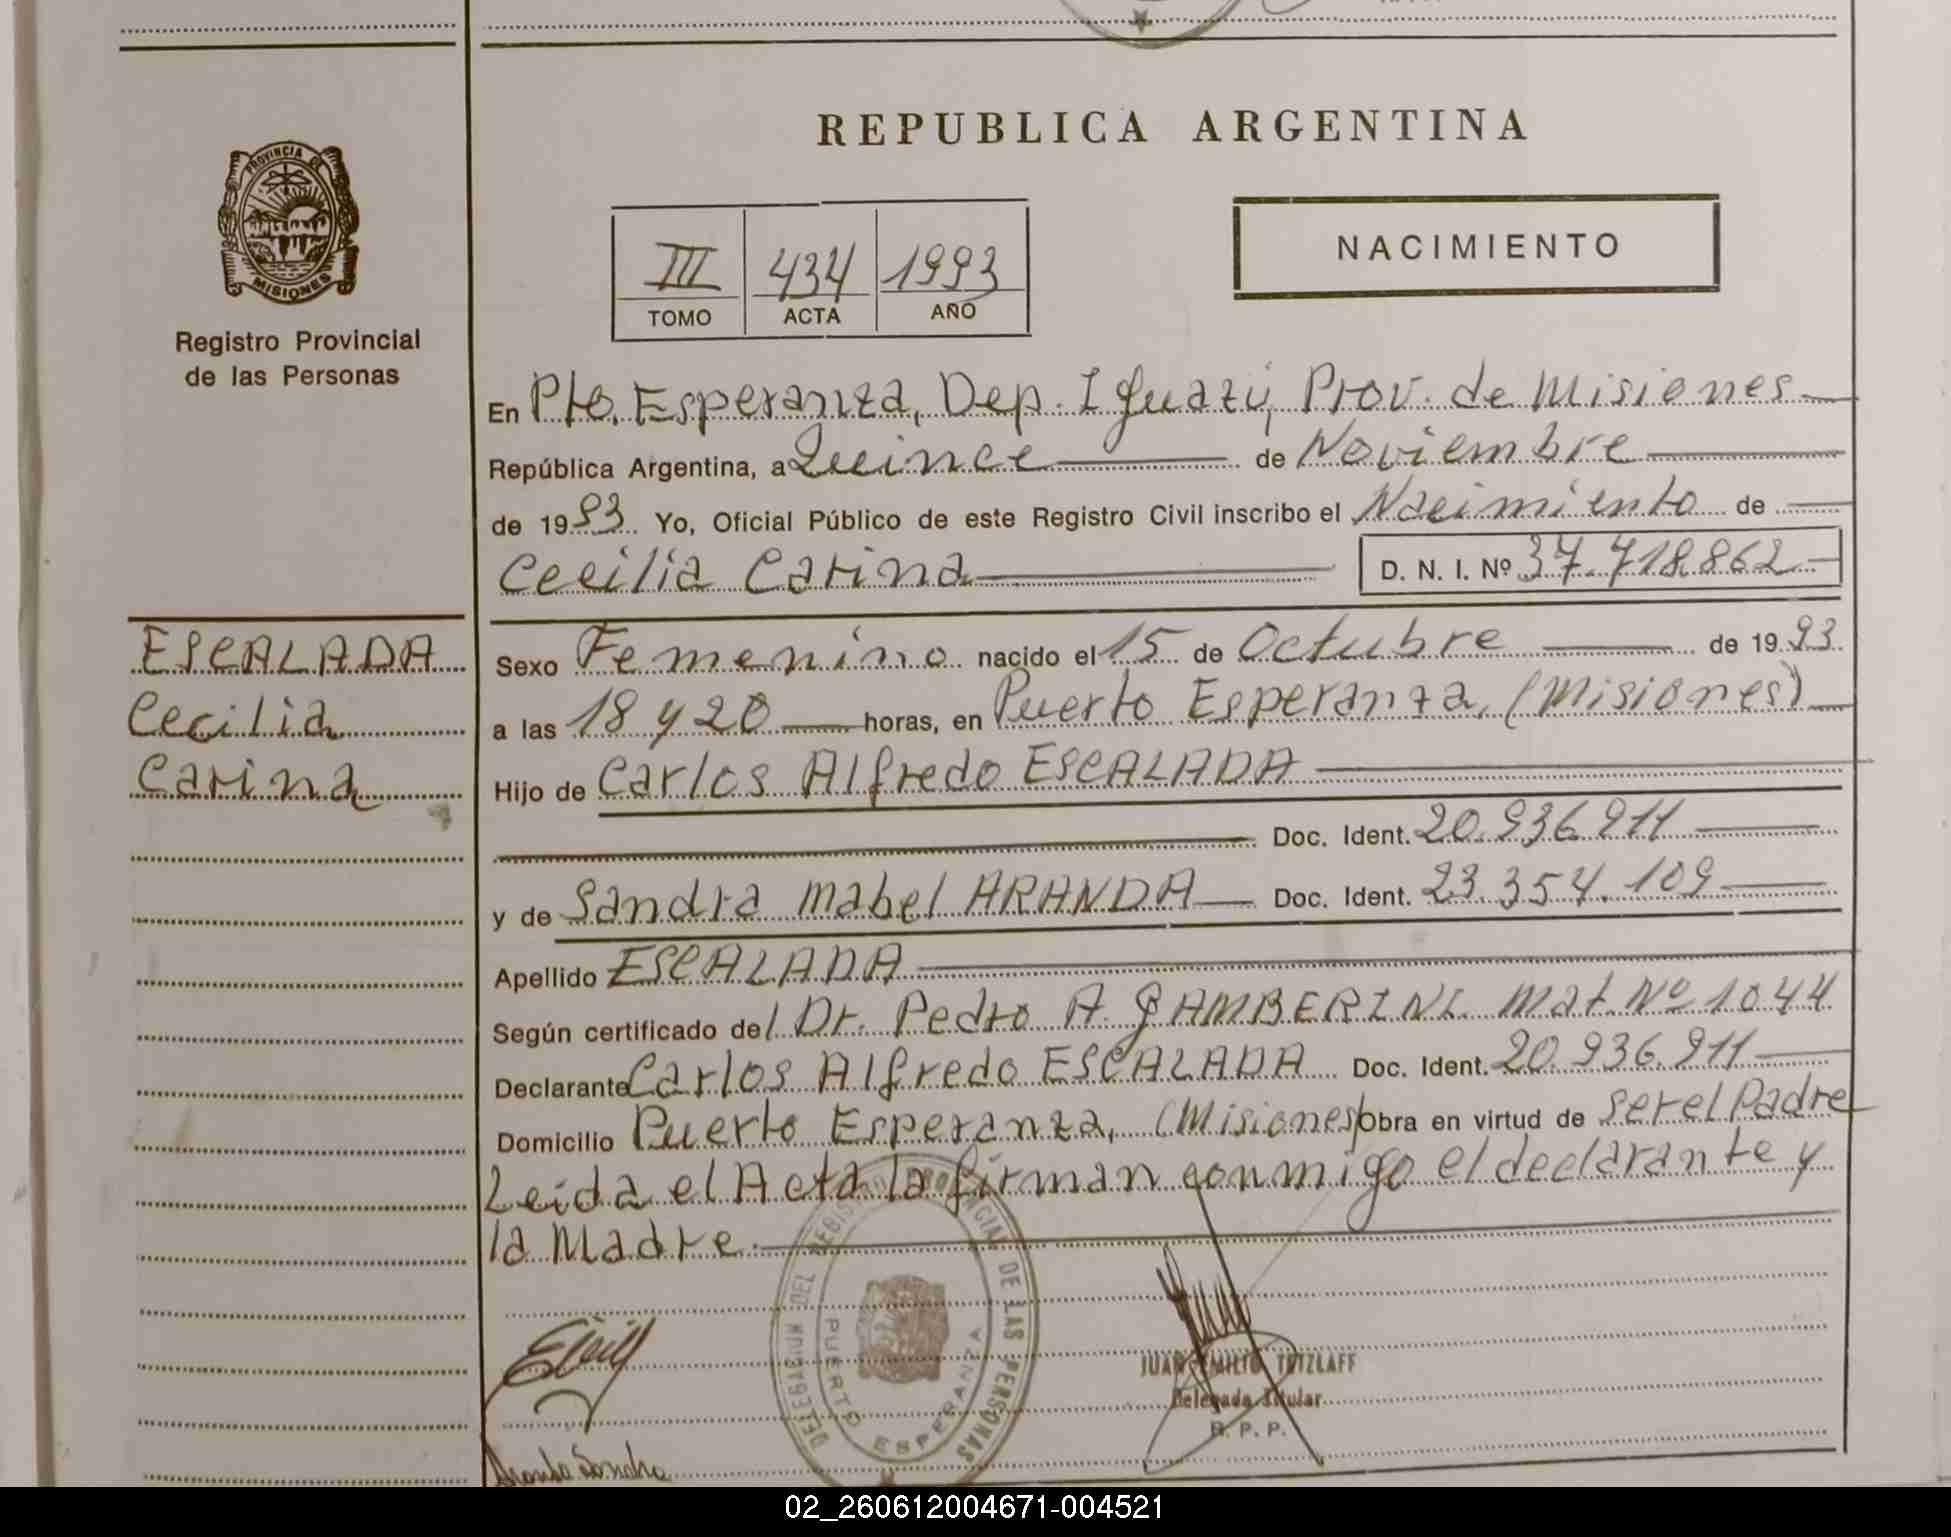 REPUBLICA ARGENTINA
PROVINCIA DE
MISIONES
Registro Provincial
de las Personas
III 434 1993
TOMO ACTA AÑO
NACIMIENTO
En Pto. Esperanza, Dep. Iguazú, Prov. de Misiones
República Argentina, a Quince de Noviembre
de 1993 Yo, Oficial Público de este Registro Civil inscribo el Nacimiento de
Cecilia Carina D. N. I. Nº 37.718.862
ESCALADA
Cecilia
Carina
Sexo Femenino nacido el 15 de Octubre de 1993
a las 18 y 20 horas, en Puerto Esperanza, (Misiones)
Hijo de Carlos Alfredo ESCALADA
Doc. Ident. 20.936.911
y de Sandra Mabel ARANDA Doc. Ident. 23.354.109
Apellido ESCALADA
Según certificado del Dr. Pedro A. GAMBERINI. Mat. Nº 1044
Declarante Carlos Alfredo ESCALADA Doc. Ident. 20.936.911
Domicilio Puerto Esperanza, (Misiones) Obra en virtud de ser el Padre
Leida el Acta la firman conmigo el declarante y
la Madre.
DELEGACION DEL REGISTRO PROVINCIAL DE LAS PERSONAS
PUERTO ESPERANZA
JUAN EMILIO TETZLAFF
Delegado Titular
R. P. P.
Aranda Sandra
02_260612004671-004521